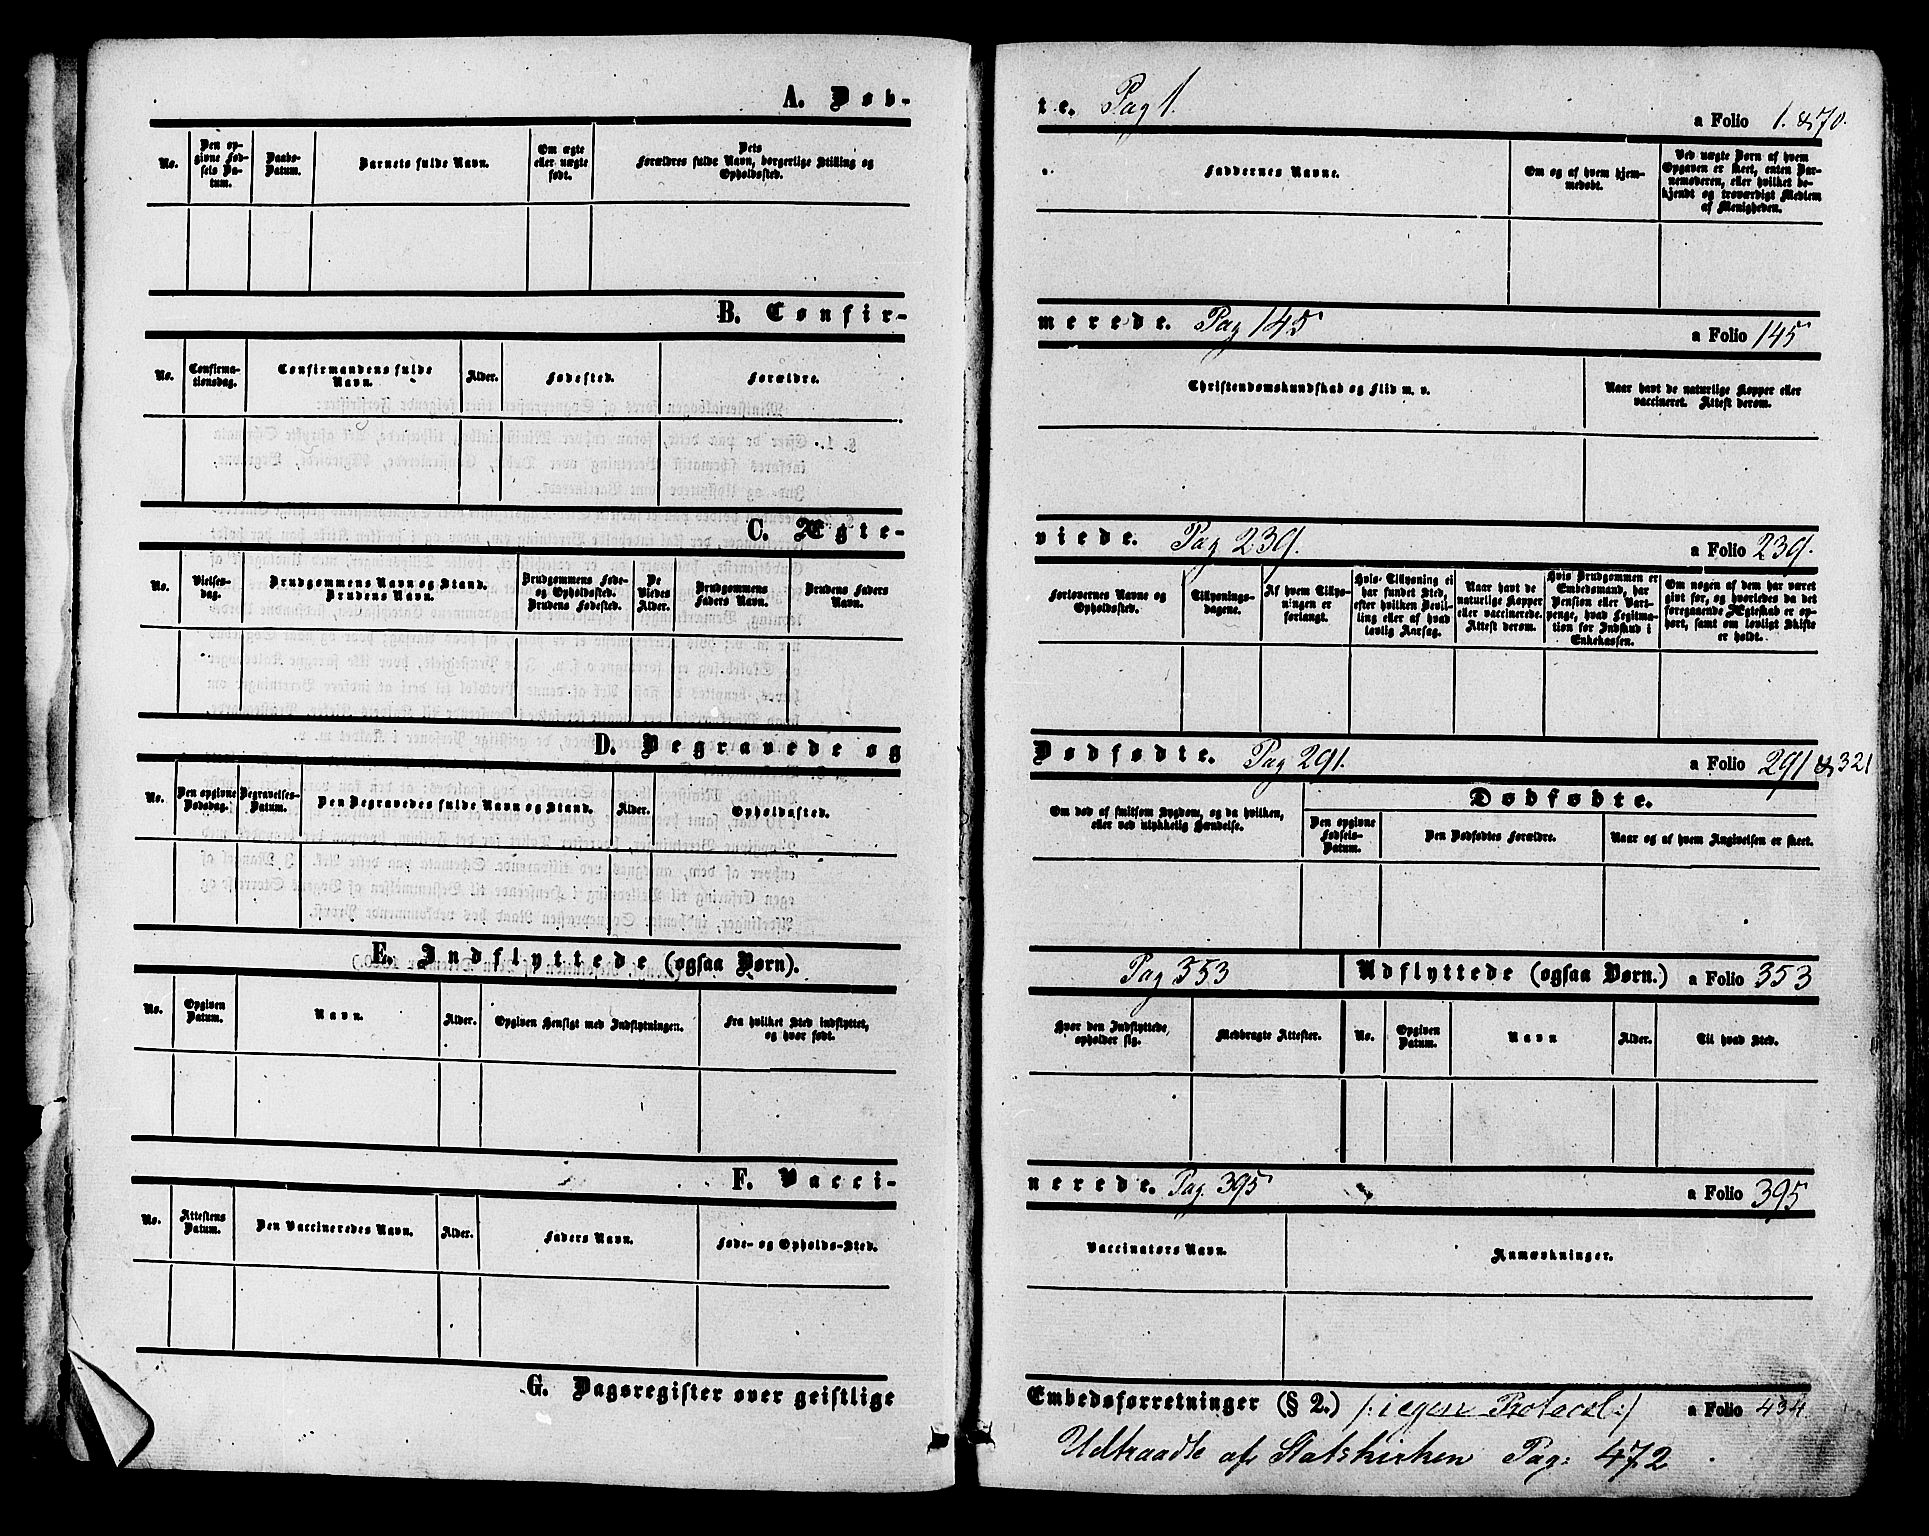 A. Døb-
No.
Den op-
givne Fød-
sels Da-
tum.
Daabs-
Datum.
Barnets fulde Navn.
Om ægte
eller uægte
født.
Dets
Forældres fulde Navn, borgerlige Stilling og
Opholdssted.
te. Pag 1.
a Folio 1. & 70.
Faddernes Navne.
Om og af hvem hjem-
medøbt.
Ved uægte Børn af hvem
Opgaven er skeet, enten Bar-
nemoderen, eller hvilket be-
kjendt og troværdigt Medlem
af Menigheden.
B. Confir-
No.
Confirma-
tionsdag.
Confirmandens fulde
Navn.
Alder.
Fødested.
Forældre.
merede. Pag 145
a Folio 145
Christendomskundskab og Flid m. v.
Naar havt de naturlige Kopper eller
vaccineret. Attest derom.
C. Ægte-
No.
Vielses-
dag.
Brudgommens Navn og Stand.
Brudens Navn.
Brudgommens Føde-
og Opholdssted.
Brudens Fødested.
De
Viedes
Alder.
Brudgommens
Faders Navn.
Brudens Faders
Navn.
viede. Pag 239.
a Folio 239.
Forlovernes Navne og
Opholdssted.
Tillysnings-
dagene.
Af hvem Tillys-
ningen er
forlangt.
Hvis Tillysning ei
har fundet Sted,
efter hvilken Bevil-
ling eller af hvad
lovlig Aarsag.
Naar havt de
naturlige Kopper
eller vaccinerede.
Attest derom.
Hvis Brudgommen er
Embedsmand, har
Pension eller Vart-
penge, hvad Legitma-
tion for Indskud i
Enkekassen.
Om nogen af dem har været
givt før, og hvorledes da det
foregaaende Ægteskab er op-
hørt, samt om lovligt Skifte
er holdt.
D. Begravede og
No.
Den opgivne
Dødsdag.
Begravelses-
Datum.
Den Begravedes fulde Navn og Stand.
Alder.
Opholdssted.
Dødfødte. Pag 291.
a Folio 291 & 321
Om død af smitsom Sygdom, og da hvilken,
eller ved ulykkelig Hændelse.
Dødfødte.
Den opgivne
Fødsels-
Datum.
Den Dødfødtes Forældre.
Naar og af hvem Angivelsen er skeet.
E. Indflyttede (ogsaa Børn).
No.
Opgiven
Datum.
Navn.
Alder.
Opgiven Hensigt med Indflytningen.
Fra hvilket Sted indflyttet,
og hvor født.
Pag 353
Udflyttede (ogsaa Børn.) a Folio 353
Hvor den Indflyttede,
opholder sig.
Medbragte Attester.
No.
Opgiven
Datum.
Navn
Alder.
Til hvad Sted.
F. Vacci-
No.
Attestens
Datum.
Den Vaccineredes Navn.
Alder.
Faders Navn.
Føde- og Opholds-Sted.
nerede. Pag. 395
a Folio 395
Vaccinators Navn.
Anmærkninger.
G. Dagsregister over geistlige
Embedsforretninger (§ 2.) /: i egen Protocol :/ a Folio 434
Udtraadte af Statskirken Pag: 472